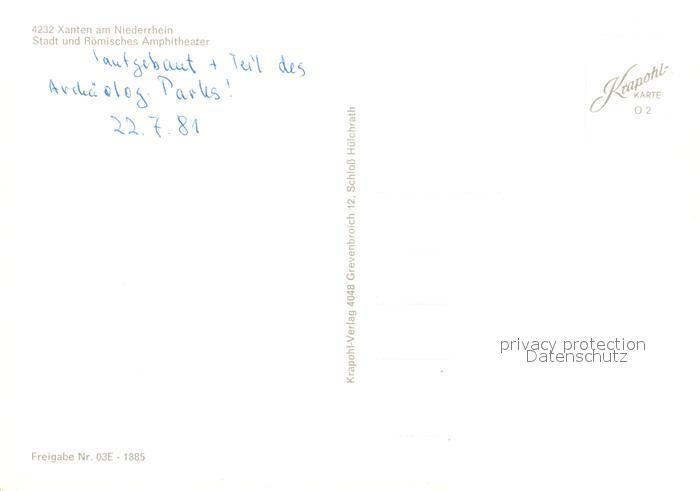 4232 Xanten am Niederrhein
Stadt und Römisches Amphitheater
+ Teil des
Archäolog. Parks!
22.7.81
Krapohl-
KARTE
O 2
Krapohl-Verlag 4048 Grevenbroich 12, Schloß Hülchrath
privacy protection
Datenschutz
Freigabe Nr. 03E - 1885